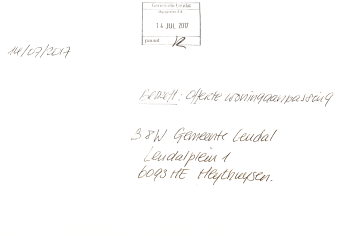 Gemeente Leudal
14 JUL 2017
paraaf
14/07/2017
Betreft: Offerte woningaanpassing
B&W Gemeente Leudal
Leudalplein 1
6093HE Heythuysen.